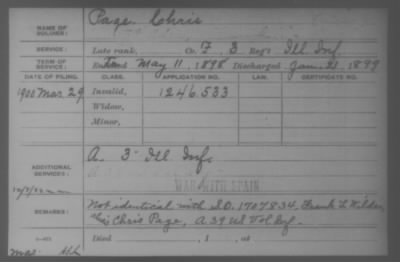 Page, Chris
NAME OF SOLDIER:
SERVICE: Late rank, Co. F, 3 Reg't Ill Inf
TERM OF SERVICE: May 11, 1898 Discharged Jan. 1899
DATE OF FILING. CLASS. APPLICATION NO. LAW. CERTIFICATE NO.
1900 Mar. 29 Invalid, 1246.533
Widow,
Minor,
ADDITIONAL SERVICES: A. 3" Ill Inf.
WAR WITH SPAIN
REMARKS: Not identical with S.O. 1707834, Frank L. Wilder,
Chris Page, A 39 US Vol Inf.
Died , 1 , at